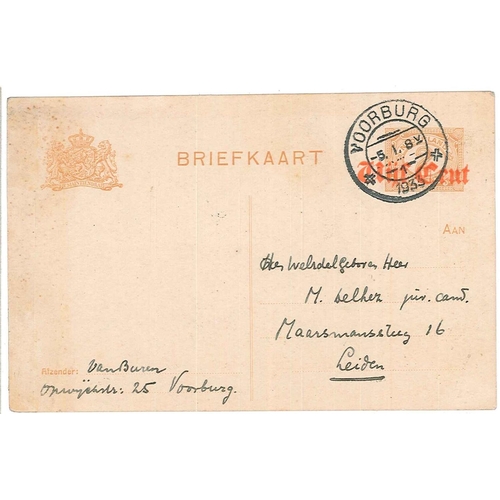 BRIEFKAART
VOORBURG
-5.1.8V
1933
Vijf Cent
AAN
Den Weledelgeboren Heer
M. Delhez jur. cand.
Maarsmanssteeg 16
Leiden
Afzender: van Buren
25 Voorburg.